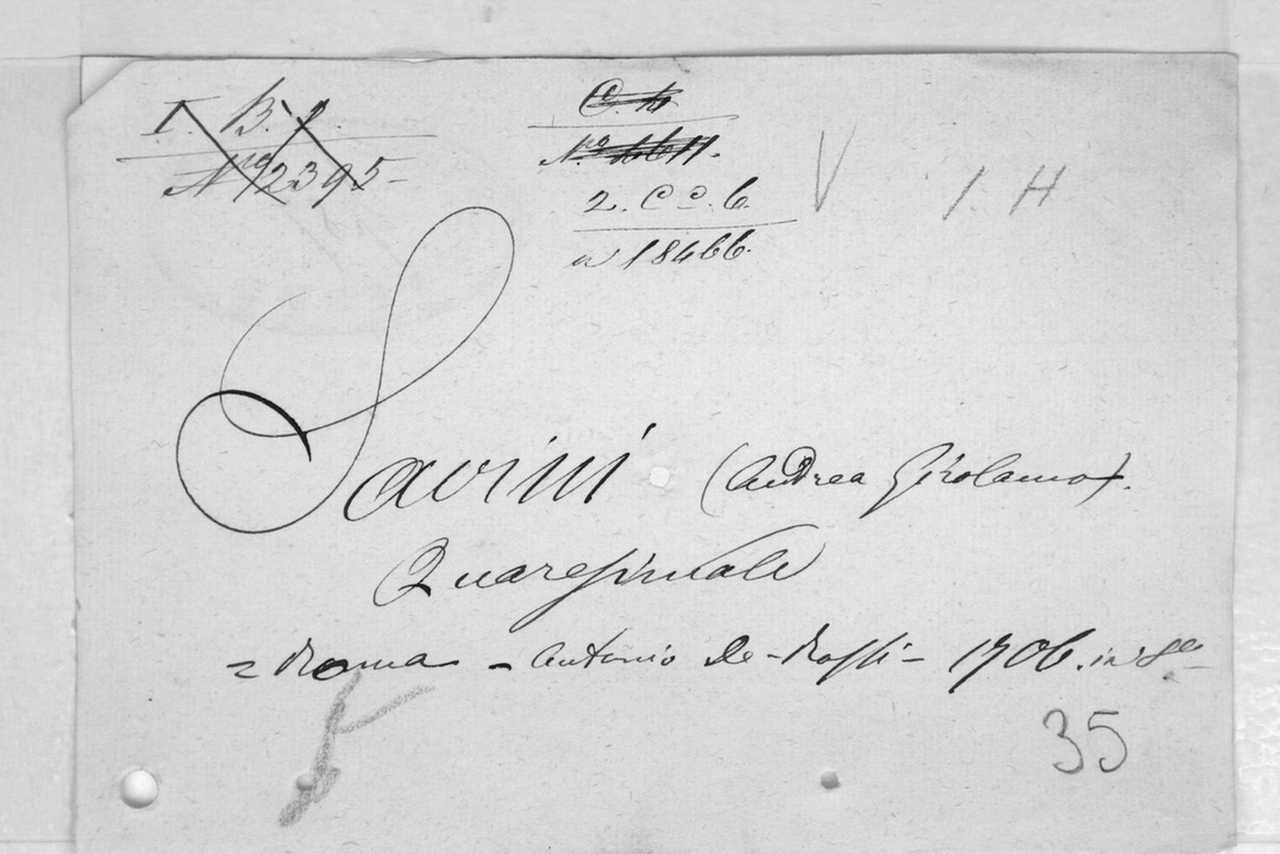 I. B. 1.
Nº 2395
2. C C. 6.
n 18466.
V
1. H
Savini (Andrea Girolamo).
Quaresimale
= Roma - Antonio De-Rossi - 1706. in 8º
35